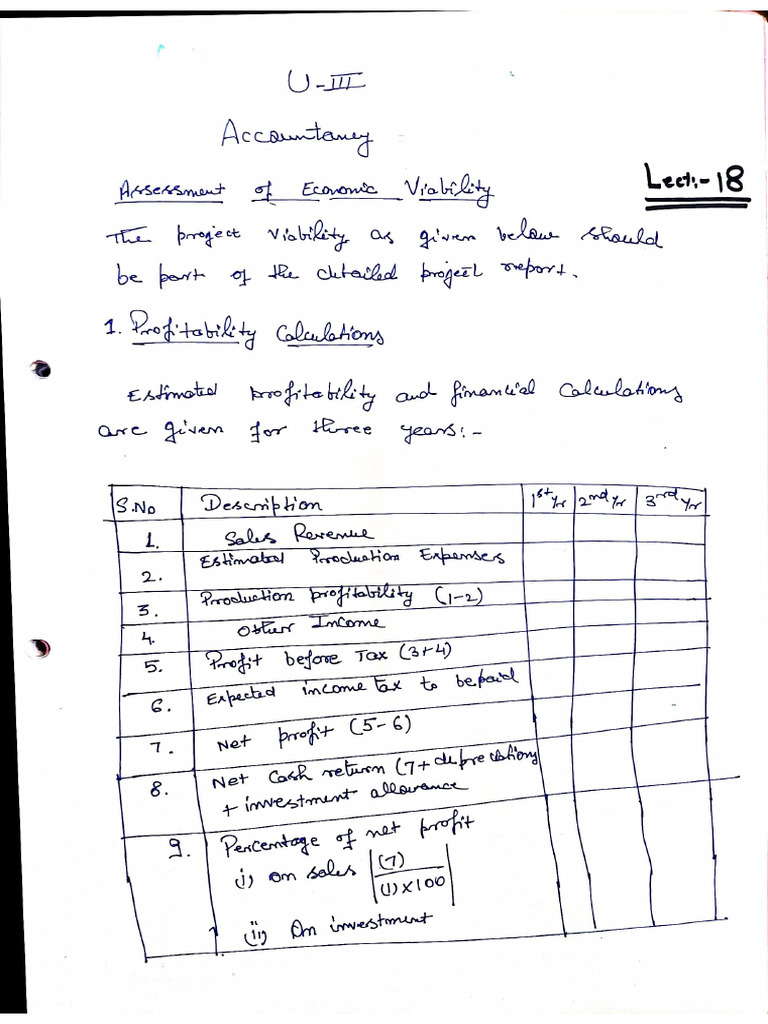 U-III
Accountancy
Assessment of Economic Viability
Lect:-18
The project viability as given below should
be part of the detailed project report.
1. Profitability Calculations
Estimated profitability and financial calculations
are given for three years:-
S.No Description 1st yr 2nd yr 3rd yr
1. Sales Revenue
2. Estimated Production Expenses
3. Production profitability (1-2)
4. Other Income
5. Profit before Tax (3+4)
6. Expected income tax to be paid
7. Net profit (5-6)
8. Net Cash return (7+depreciation)
+ investment allowance
9. Percentage of net profit
(i) on sales |(7)
(1)×100|
(ii) On investment